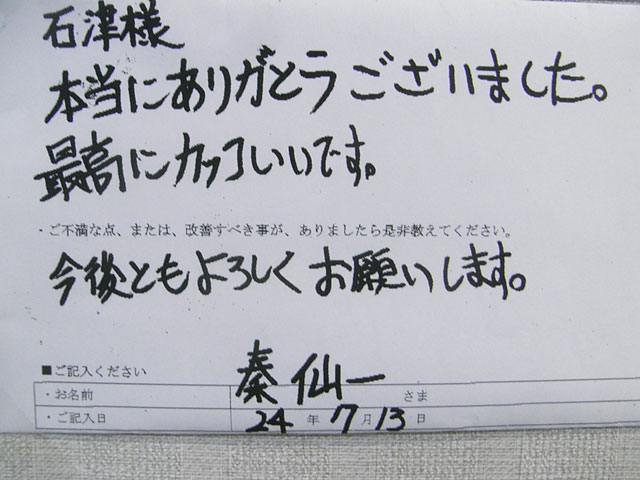 石津様
本当にありがとうございました。
最高にカッコいいです。
・ご不満な点、または、改善すべき事が、ありましたら是非教えてください。
今後ともよろしくお願いします。
■ご記入ください
・お名前 秦仙一 さま
・ご記入日 24年7月13日